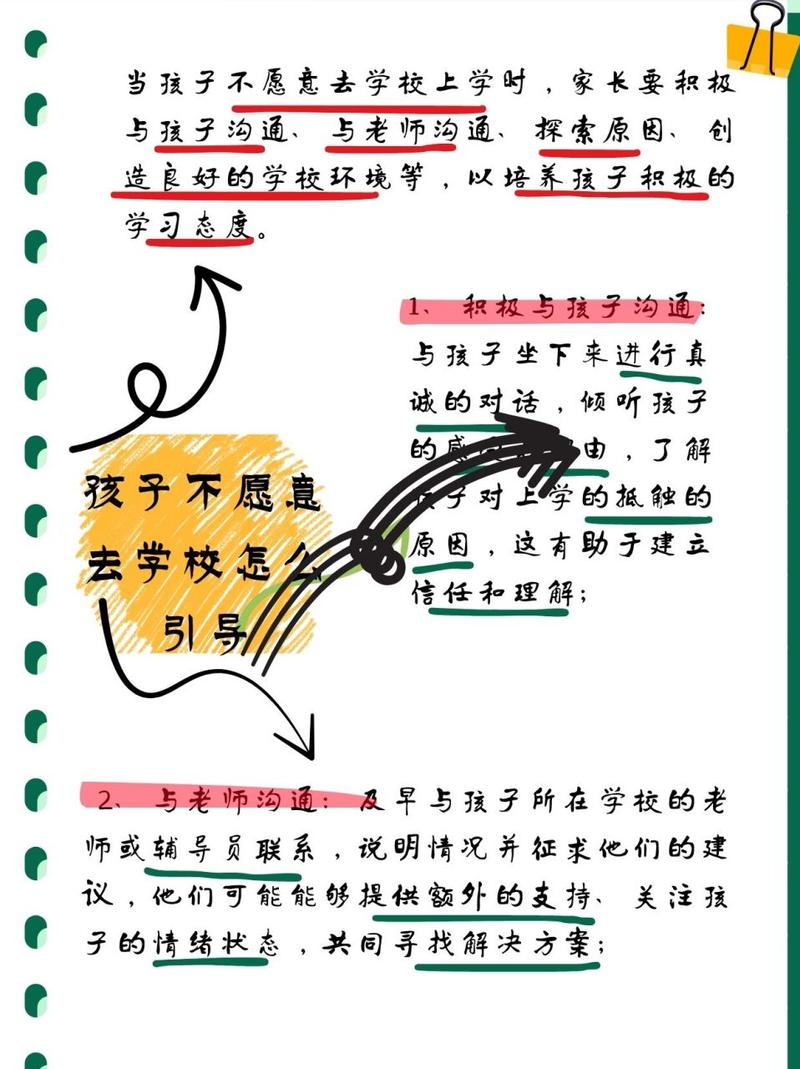 当孩子不愿意去学校上学时，家长要积极
与孩子沟通、与老师沟通、探索原因、创
造良好的学校环境等，以培养孩子积极的
学习态度。
孩子不愿意
去学校怎么
引导
1、积极与孩子沟通：
与孩子坐下来进行真
诚的对话，倾听孩子
的感 由，了解
子对上学的抵触的
原因，这有助于建立
信任和理解；
2、与老师沟通：及早与孩子所在学校的老
师或辅导员联系，说明情况并征求他们的建
议，他们可能能够提供额外的支持、关注孩
子的情绪状态，共同寻找解决方案；